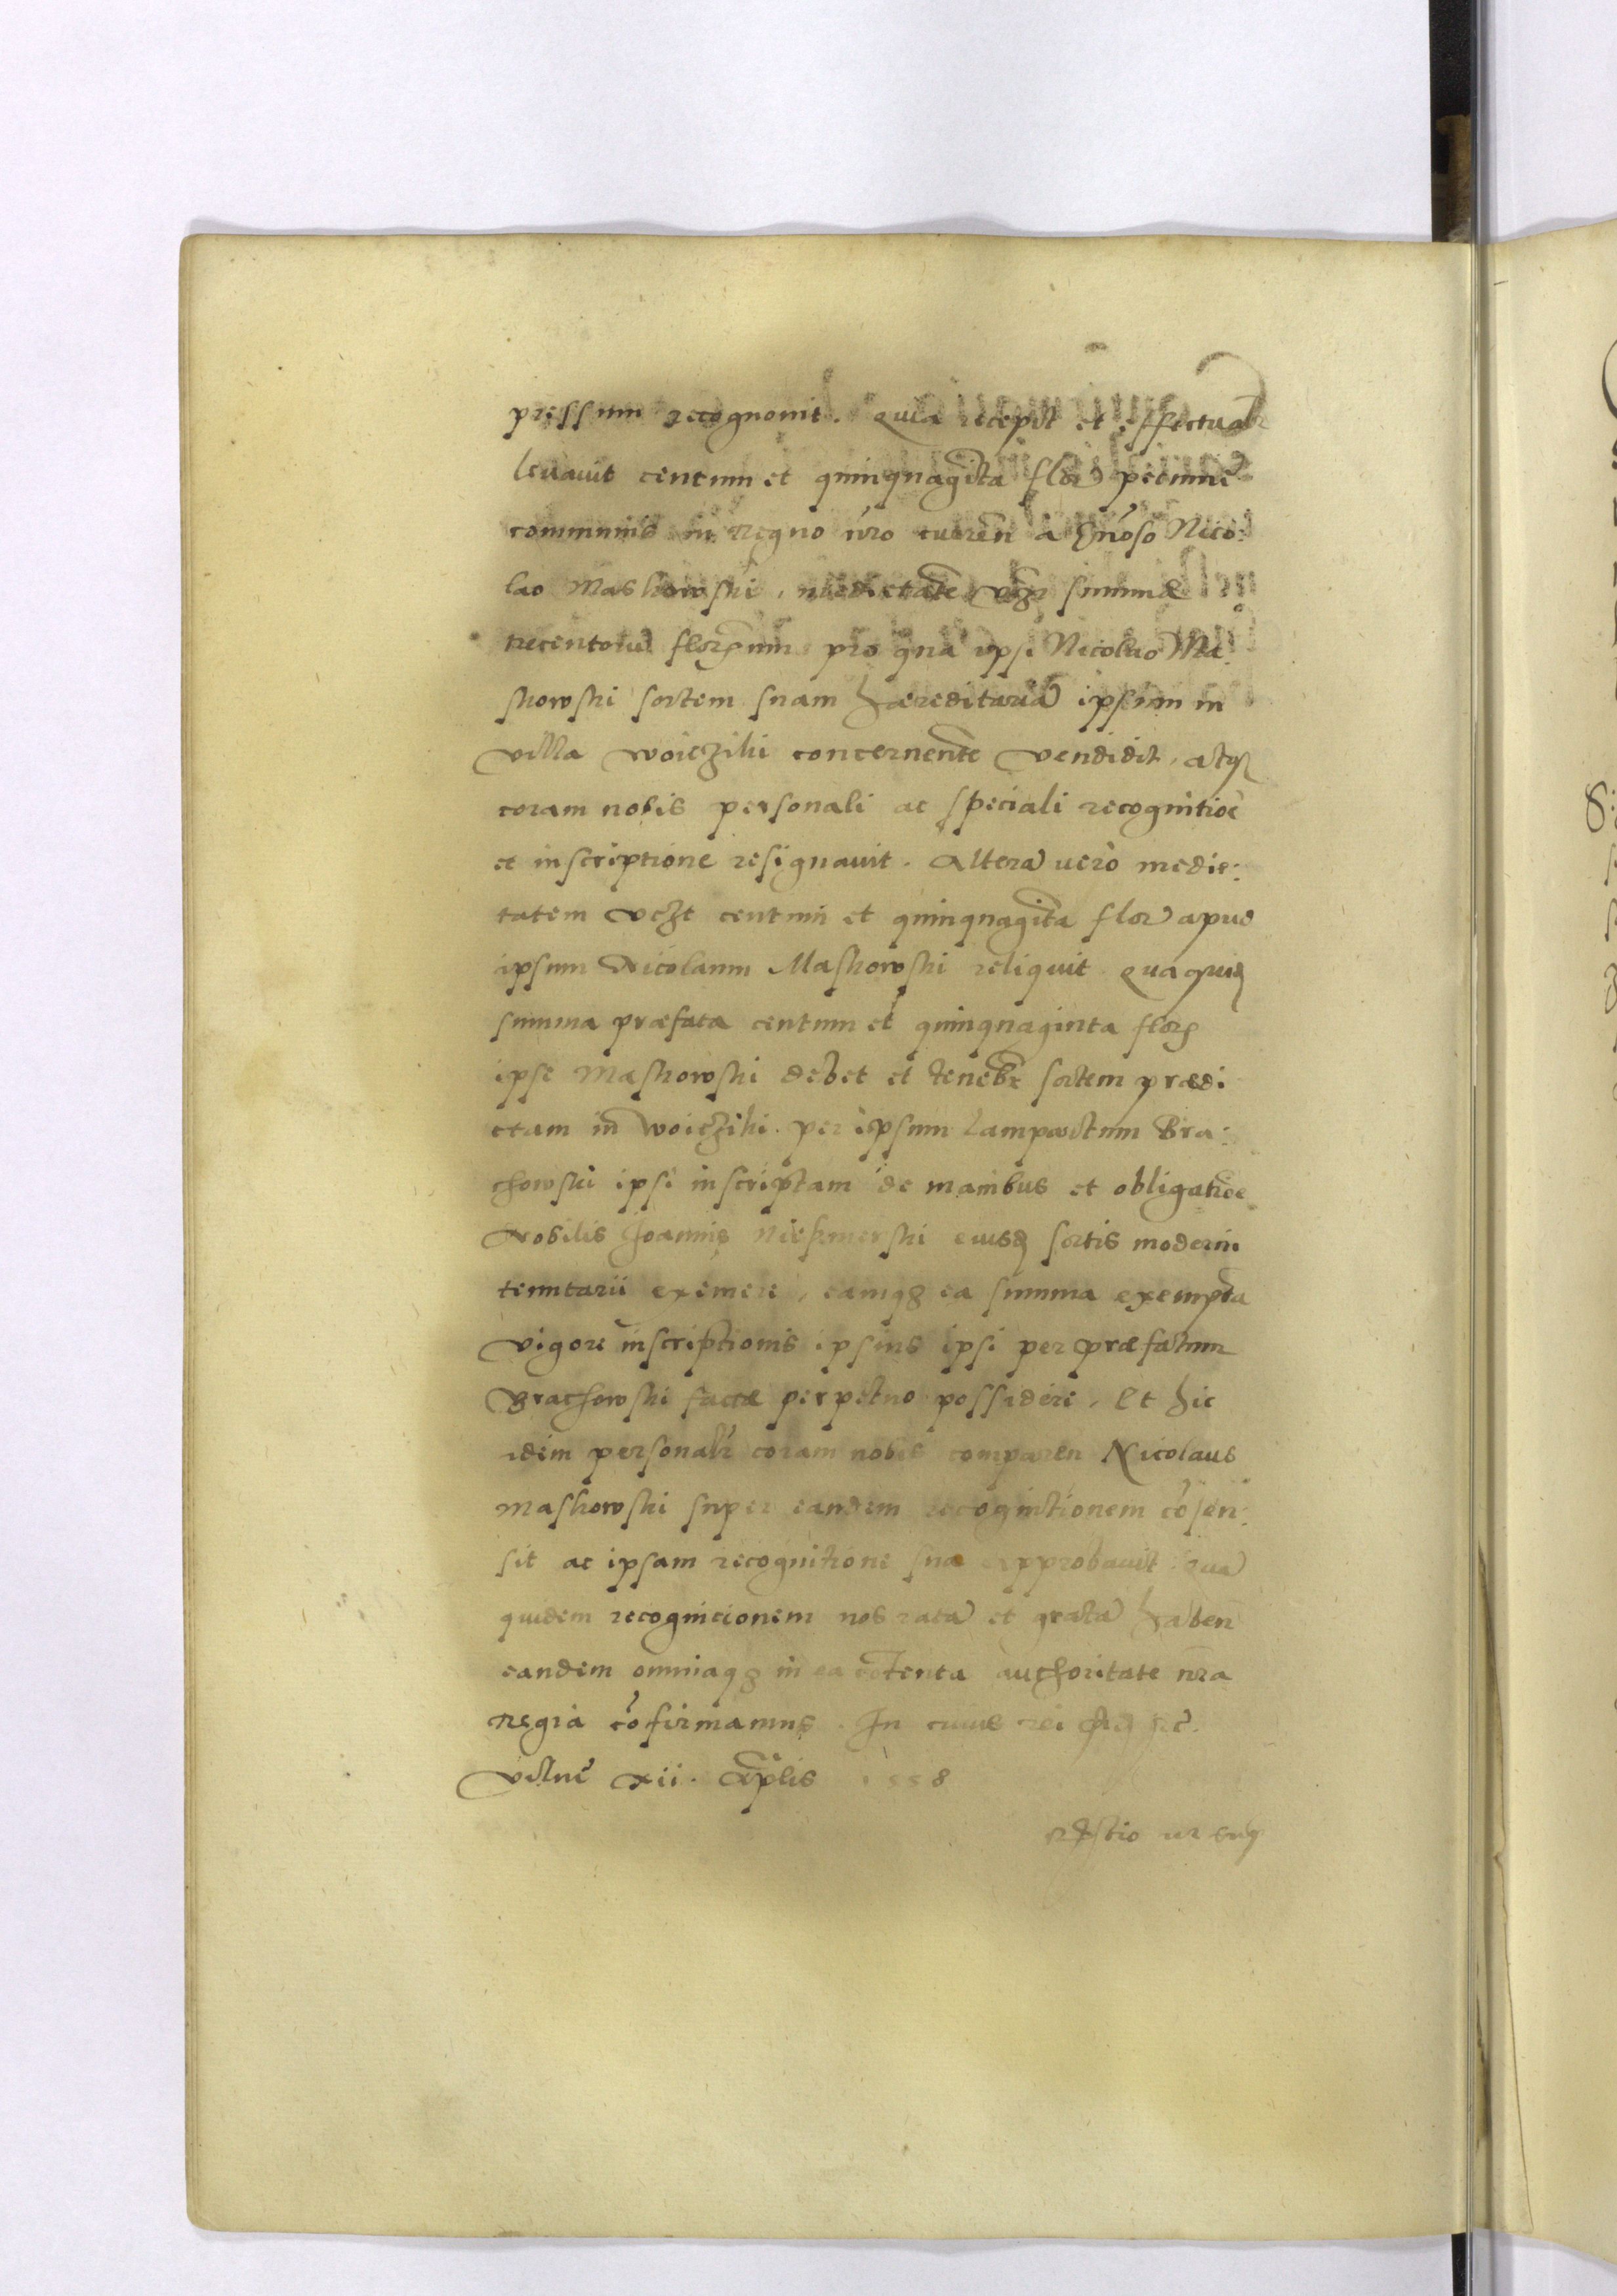 pressum recognovit. Quia recepit et effectualr
levavit centum et quinquagīta flor̄ pecuniē
communis in regno nr̄o curren̄ a gn̄oso Nico:
lao Maskowski, medietatē vȝ summæ
trecentorū florenum pro qua ipsi Nicolao Ma
skowski sortem suam hæreditariā ipsum in
villa Woiczihi concernentē vendidit, atqȝ
coram nobis personali ac speciali recognitioē
et inscriptione resignavit. Alterā verò medie:
tatem vcȝt centum et quinquagīta flor̄ apud
ipsum Nicolaum Maskowski reliquit Qua quiđ
summa præfata centum et quinquaginta flor̄
ipse Maskowski debet et tenebr̄ sortem prædi
ctam in Woiczihi per ipsum Lampartum Bra:
chowski ipsi inscriptam de manibus et obligatiōe
Nobilis Joannis eiusđ sortis moderni
tenutarii eximere, eamqȝ ea summa exempta
vigore inscriptionis ipsius ipsi per præfatum
Brachowski factæ perpetuo possidere, Et hic
idem personalr̄ coram nobis comparen̄ Nicolaus
Maskowski super eandem recognitionem cō̄sen:
sit ac ipsam recognitione sua approbavit Quā
quidem recognicionem nos ratā et gratā haben̄
eandem omniaqȝ in ea cōtenta authoritate nr̄a
regia cōfirmamus. In cuius rei etc̄.
Vilnē xii. Aplis 1558